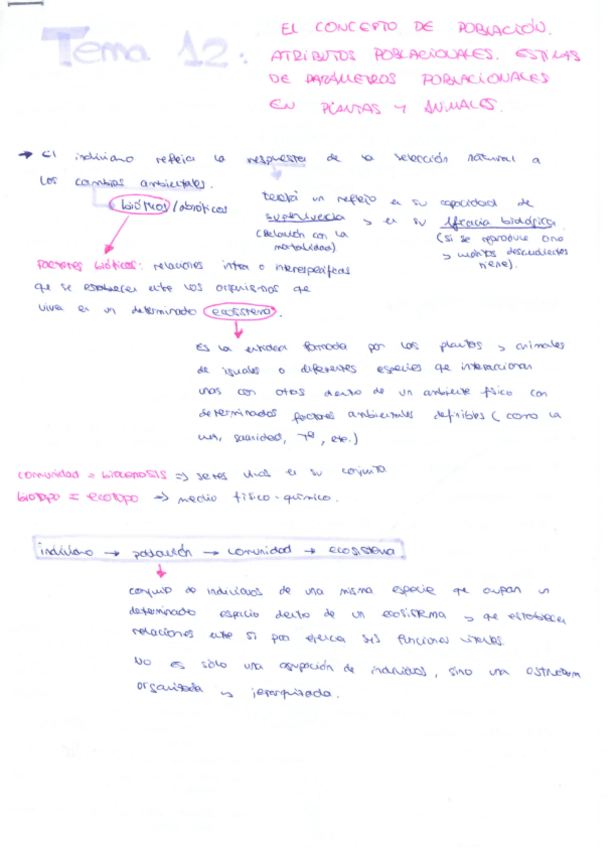 Tema 12:
EL CONCEPTO DE POBLACIÓN.
ATRIBUTOS POBLACIONALES. ESTIMAS
DE PARÁMETROS POBLACIONALES
EN PLANTAS Y ANIMALES.
→ El individuo refleja la respuesta de la selección natural a
los cambios ambientales.
bióticos/abióticos
tendrá un reflejo en su capacidad de
supervivencia y en su eficacia biológica
(Relación con la
mortalidad)
(si se reproduce o no
y cuántos descendientes
tiene).
Factores bióticos: relaciones intra o interespecíficas
que se establecen entre los organismos que
viven en un determinado ecosistema.
Es la entidad formada por las plantas y animales
de iguales o diferentes especies que interaccionan
unas con otras dentro de un ambiente físico con
determinados factores ambientales definibles (como la
luz, salinidad, Tª, etc.)
comunidad = biocenosis => seres vivos en su conjunto
biotopo = ecotopo => medio físico-químico.
individuo → población → comunidad → ecosistema
conjunto de individuos de una misma especie que ocupan un
determinado espacio dentro de un ecosistema y que establecen
relaciones entre sí para ejercer sus funciones vitales.
No es sólo una agrupación de individuos, sino una estructura
organizada y jerarquizada.